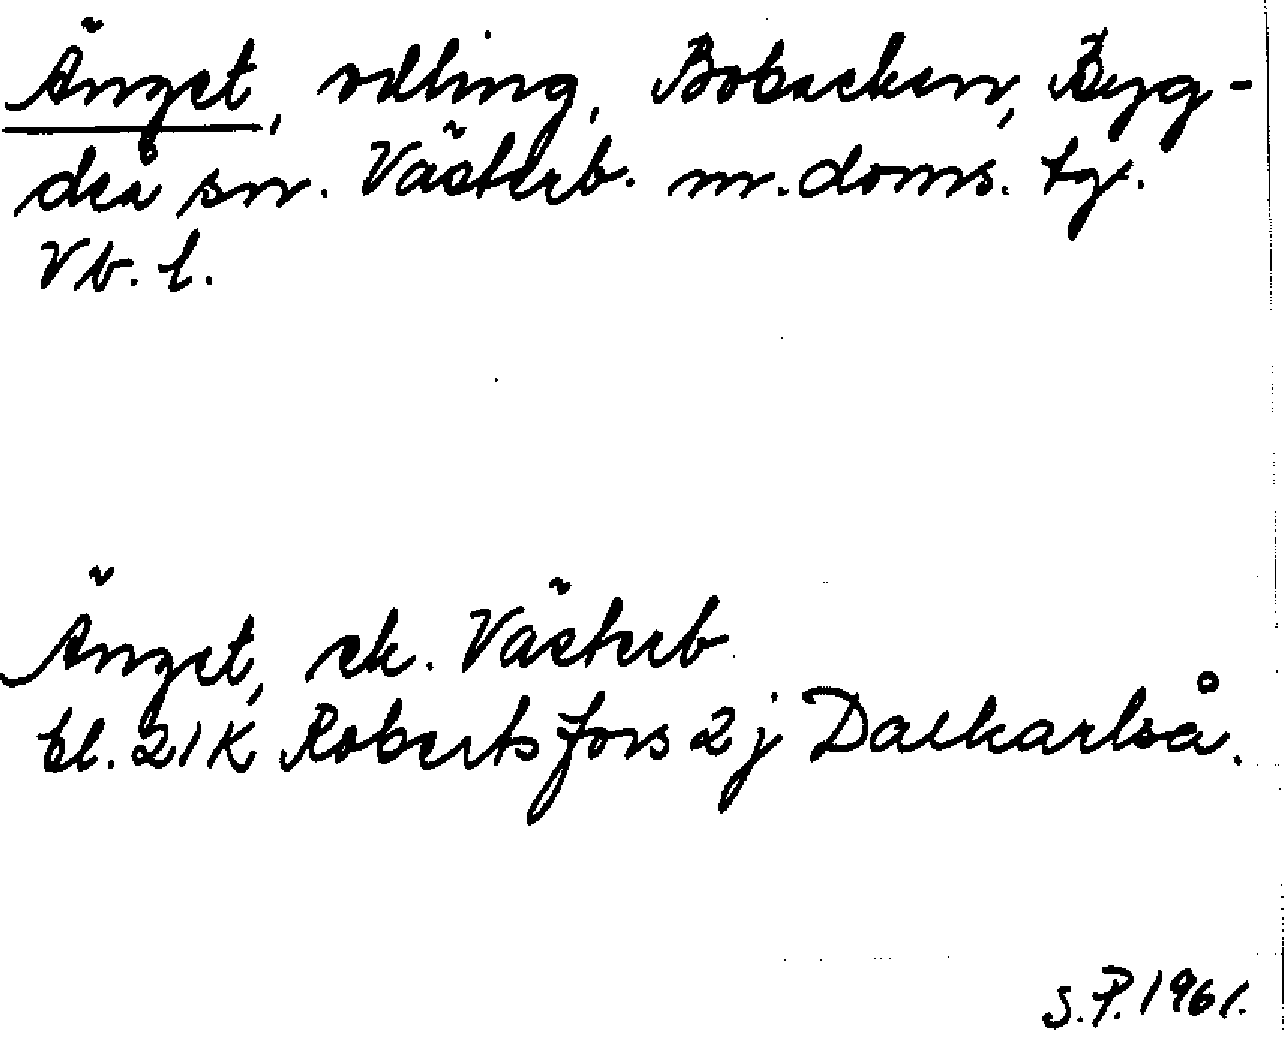 Änget, odling, Bobacken, Byg-
deå sn. Västerb. m. doms. tg.
Vb. l.
Änget, ek. Västerb
bl. 21K Robertsfors 2j Dalkarlså.
S.P. 1961.